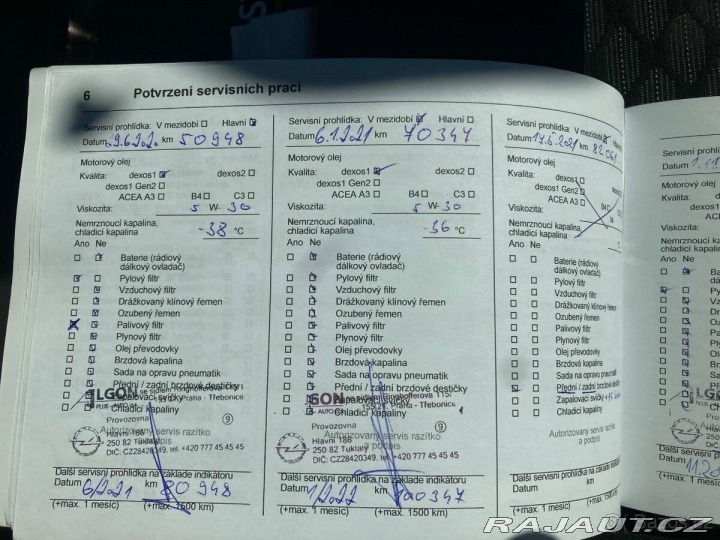 6 Potvrzení servisních prací
Servisní prohlídka: V mezidobí Hlavní
Datum 9.6.2020 km 50948
Motorový olej
Kvalita: dexos1 dexos2
dexos1 Gen2
ACEA A3 B4 C3
Viskozita: 5 W- 30
Nemrznoucí kapalina,
chladicí kapalina -38 °C
Ano Ne
Baterie (rádiový
dálkový ovladač)
Pylový filtr
Vzduchový filtr
Drážkovaný klínový řemen
Ozubený řemen
Palivový filtr
Plynový filtr
Olej převodovky
Brzdová kapalina
Sada na opravu pneumatik
Přední / zadní brzdové destičky
Zapalovací svíčky
Chladicí kapaliny
ALGON
PLUS
Provozovna
9
Autorizovaný servis razítko
Hlavní 186
250 82 Tuklaty
DIČ: CZ28420349. tel. +420 777 45 45 45
Další servisní prohlídka na základe indikátorů
Datum 6/2021 km 80948
(+max. 1 mesíc) (+max. 1500 km)
Servisní prohlídka: V mezidobí Hlavní
Datum 6.1.2021 km 70347
Motorový olej
Kvalita: dexos1 dexos2
dexos1 Gen2
ACEA A3 B4 C3
Viskozita: 5 W- 30
Nemrznoucí kapalina,
chladicí kapalina -36 °C
Ano Ne
Baterie (rádiový
dálkový ovladač)
Pylový filtr
Vzduchový filtr
Drážkovaný klínový řemen
Ozubený řemen
Palivový filtr
Plynový filtr
Olej převodovky
Brzdová kapalina
Sada na opravu pneumatik
Přední / zadní brzdové destičky
Zapalovací svíčky
Chladicí kapaliny
GON
se sídlem Ringhofferova 115/
155 21, Praha - Třebonice
AUTO
Provozovna
9
Autorizovaný servis razítko
a podpis
Hlavní 186
250 82 Tuklaty
DIČ: CZ28420349. tel. +420 777 45 45 45
Další servisní prohlídka na základe indikátorů
Datum 1/2022 km 100347
(+max. 1 mesíc) (+max. 1500 km)
Servisní prohlídka: V mezidobí
Datum 17.5.2021 km 82061
Motorový olej
Kvalita: dexos1
dexos1 Gen2
ACEA A3 B4
Viskozita: W-
Nemrznoucí kapalina,
chladicí kapalina
Ano Ne
Baterie (rádiový
dálkový ovladač)
Pylový filtr
Vzduchový filtr
Drážkovaný klínový řemen
Ozubený řemen
Palivový filtr
Plynový filtr
Olej převodovky
Brzdová kapalina
Sada na opravu pneumatik
Přední / zadní brzdové destičky
Zapalovací svíčky
Chladicí kapaliny
Autorizovaný servis razítko
a podpis
Další servisní prohlídka na základe
Datum km
(+max. 1 mesíc) (+max. 1500 km)
Servisní
Datum
Motorový
Kvalita:
dexos1
ACEA
Viskozita:
Nemrznoucí
chladicí kapalina
Ano Ne
Další servisní
Datum
(+max. 1
RAJAUT.CZ